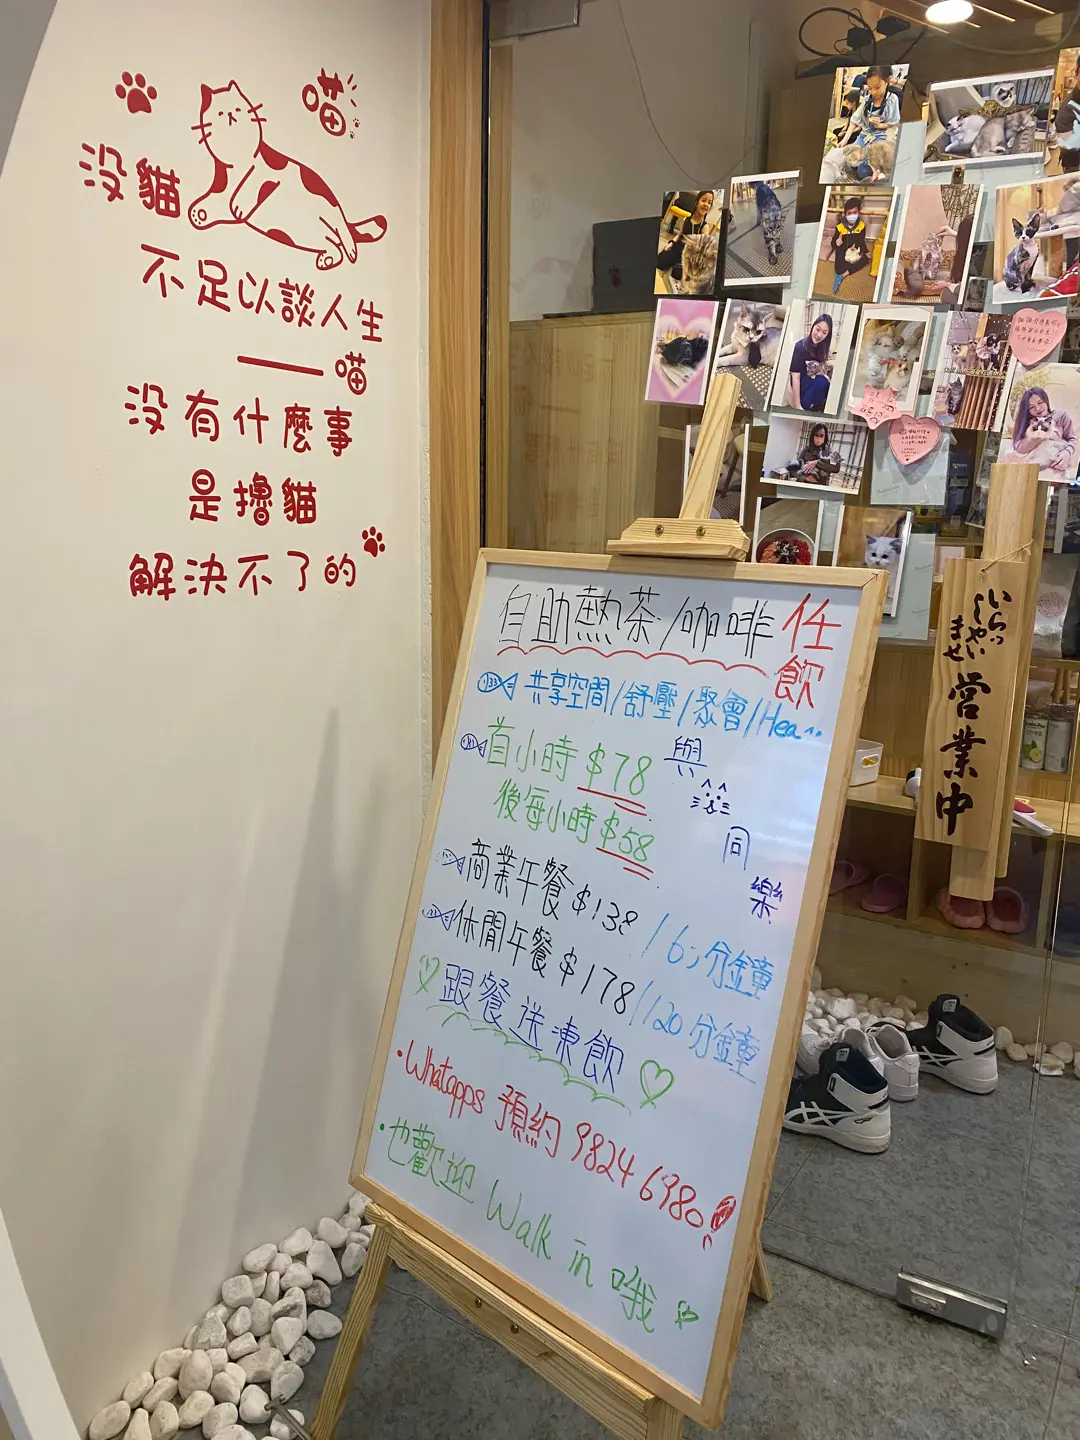 喵
没貓
不足以談人生
——喵
没有什麼事
是擼貓
解決不了的
自助熱茶/咖啡 任飲
共享空間/舒壓/聚會/Hea
首小時 $78
後每小時 $58
與
同
樂
商業午餐 $138 / 60分鐘
休閒午餐 $178 / 120分鐘
跟餐送凍飲
·Whatapps 預約 9824 6980!
·也歡迎 Walk in 哦
いらっ
しゃい
ませ
営業中